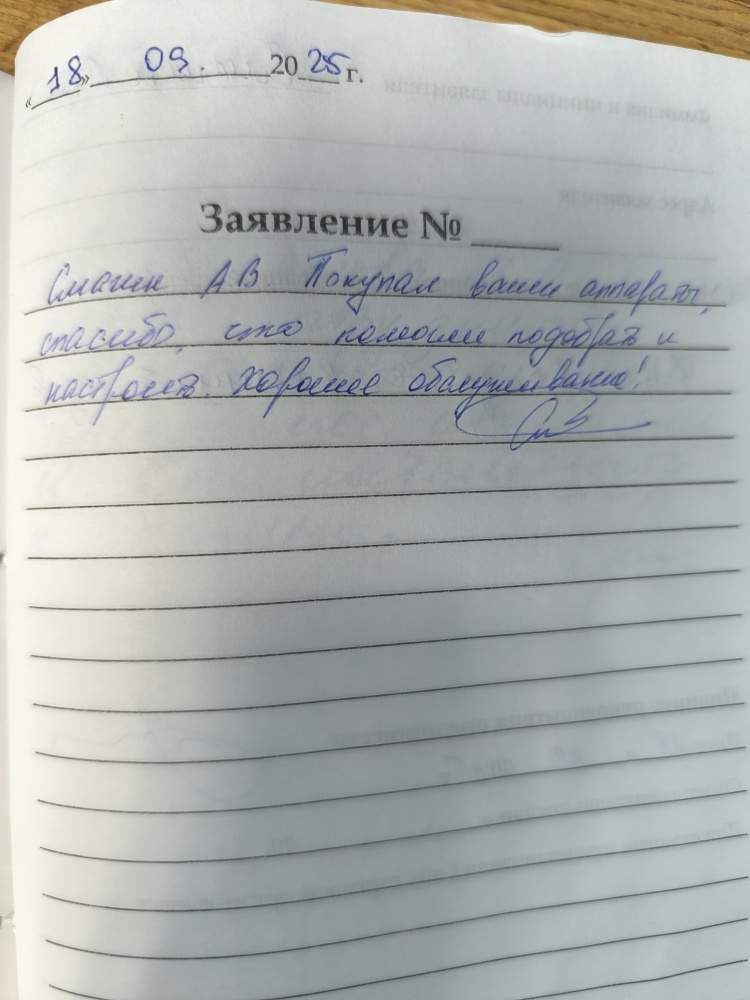 « 18 » 09. 20 25 г.
Заявление № ____
Смагин А В Покупал ваши аппараты,
спасибо, что помогли подобрать и
настроить. Хорошее обслуживание!